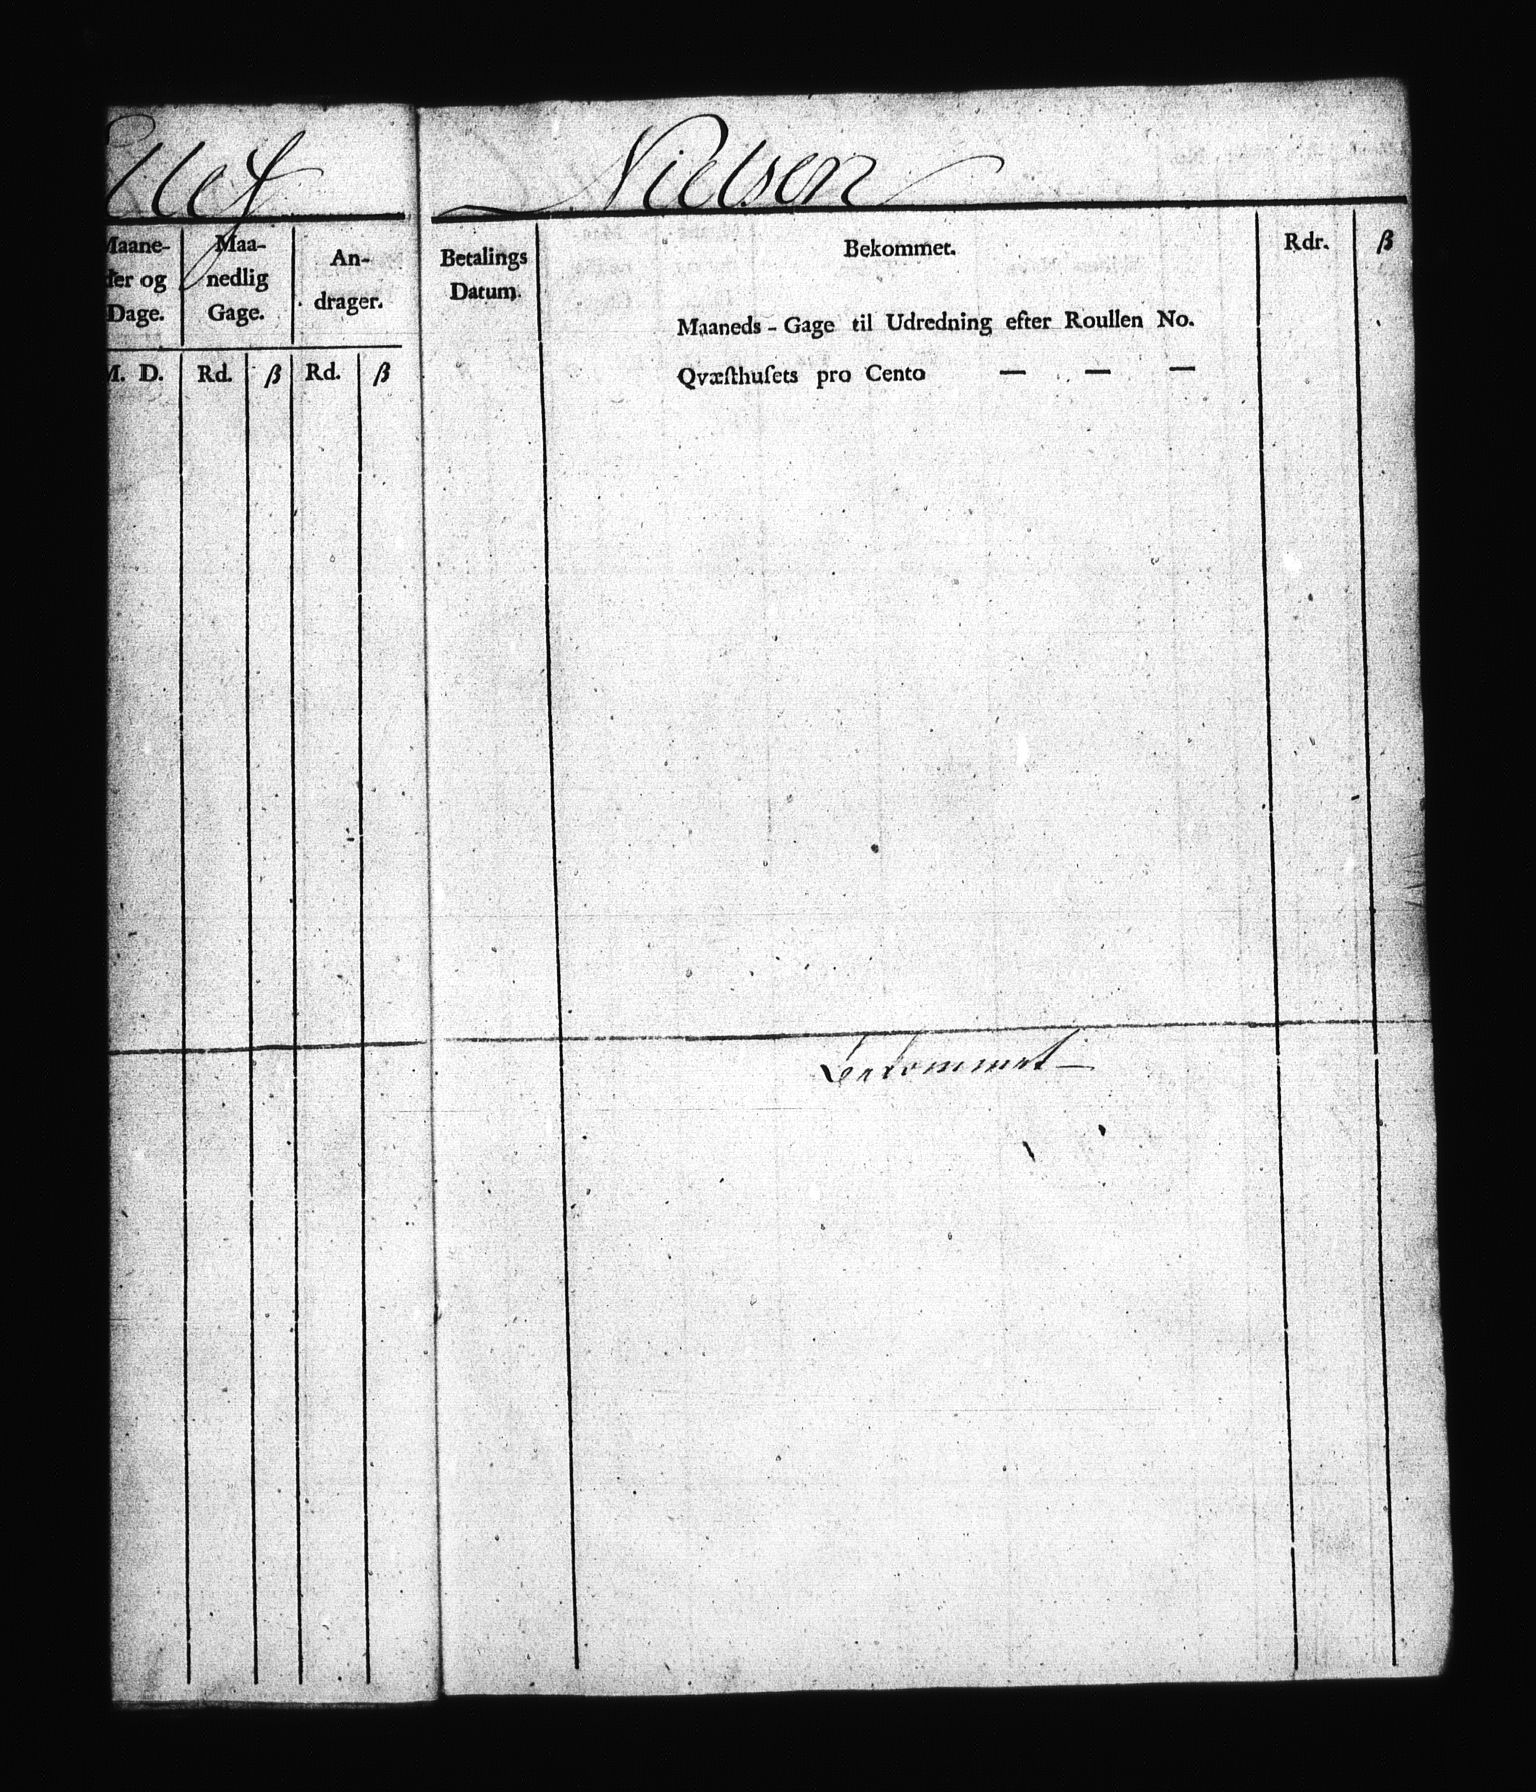 Nielsen
Maane-
der og
Dage.
Maa-
nedlig
Gage.
An-
drager.
M. D.
Rd.
ß
Rd.
ß
Betalings
Datum.
Bekommet.
Rdr.
ß
Maaneds - Gage til Udredning efter Roullen No.
Qvæſthuſets pro Cento — — —
Bekommet —